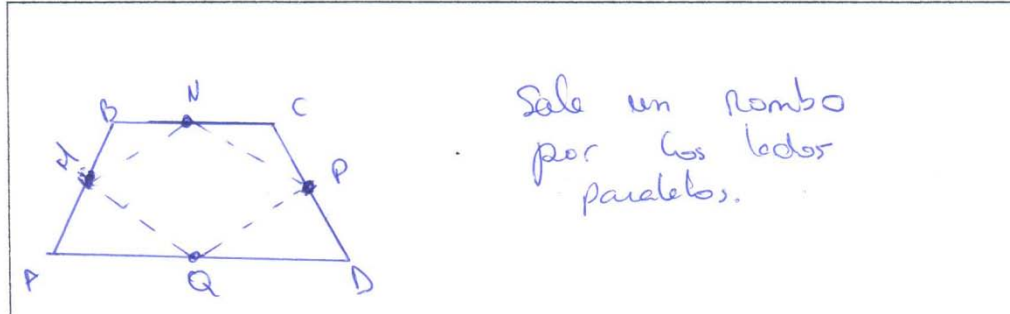 B N C
M P
A Q D
Sale un rombo
por los lados
paralelos.